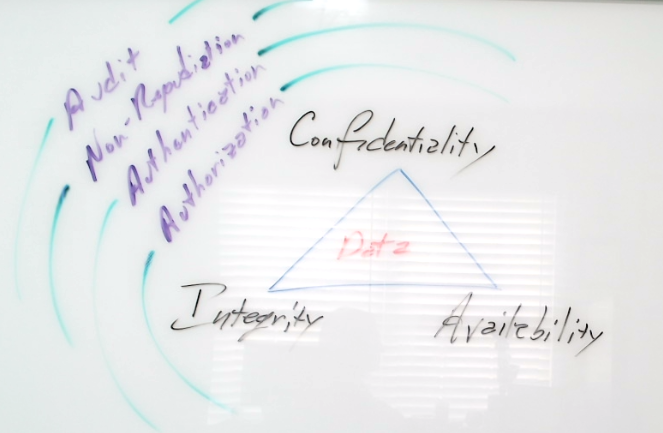 Audit
Non-Repudiation
Authentication
Authorization
Confidentiality
Data
Integrity
Availability